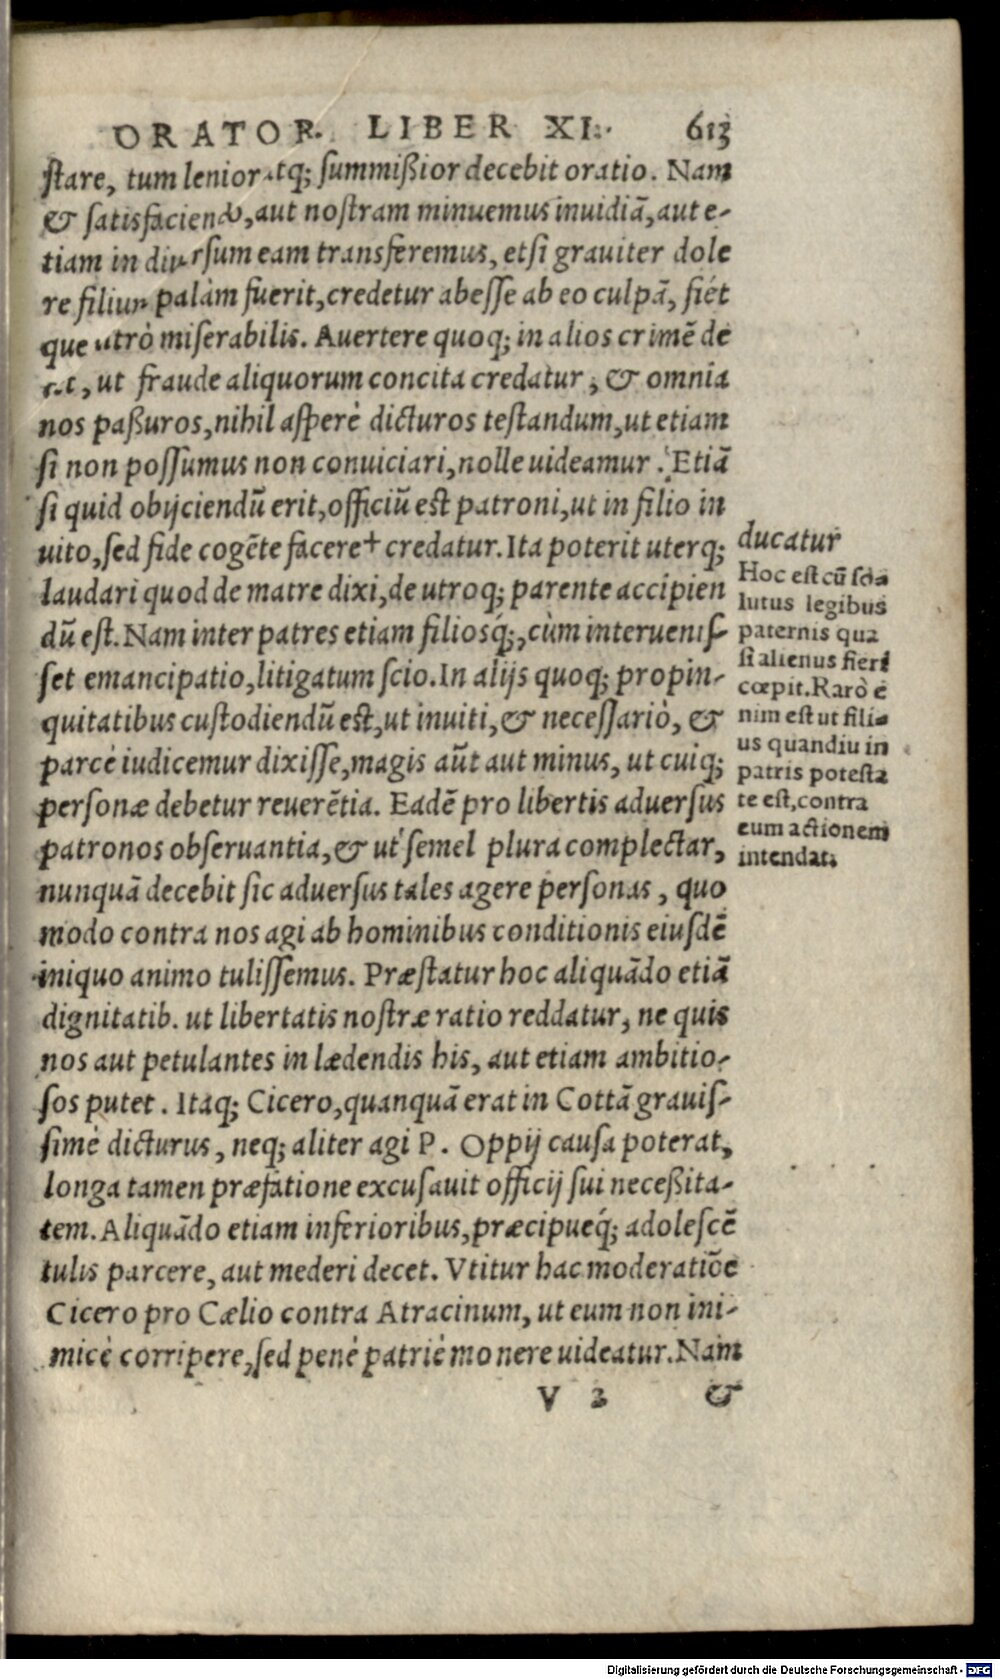 ORATOR. LIBER XI. 613
ſtare, tum lenior atq; ſummißior decebit oratio. Nam
& ſatisfaciendo, aut noſtram minuemus inuidiã, aut e-
tiam in diuerſum eam transferemus, etſi grauiter dole
re filium palàm fuerit, credetur abeſſe ab eo culpã, fiét
que utrò miſerabilis. Auertere quoq; in alios crimẽ de
ut fraude aliquorum concita credatur, & omnia
nos paßuros, nihil aſperè dicturos teſtandum, ut etiam
ſi non poſſumus non conuiciari, nolle uideamur. Etiã
ſi quid obijciendũ erit, officiũ eſt patroni, ut in filio in
uito, ſed fide cogẽte facere+ credatur. Ita poterit uterq;
laudari quod de matre dixi, de utroq; parente accipien
dũ eſt. Nam inter patres etiam filiosq́;, cùm interueniſ-
ſet emancipatio, litigatum ſcio. In alijs quoq; propin-
quitatibus cuſtodiendũ eſt, ut inuiti, & neceſſariò, &
parcè iudicemur dixiſſe, magis aũt aut minus, ut cuiq;
perſonæ debetur reuerẽtia. Eadẽ pro libertis aduerſus
patronos obſeruantia, & ut ſemel plura complectar,
nunquã decebit ſic aduerſus tales agere perſonas, quo
modo contra nos agi ab hominibus conditionis eiuſdẽ
iniquo animo tuliſſemus. Præſtatur hoc aliquãdo etiã
dignitatib. ut libertatis noſtræ ratio reddatur, ne quis
nos aut petulantes in lædendis his, aut etiam ambitio-
ſos putet. Itaq; Cicero, quanquã erat in Cottã grauiſ-
ſimè dicturus, neq; aliter agi P. Oppij cauſa poterat,
longa tamen præfatione excuſauit officij ſui neceßita-
tem. Aliquãdo etiam inferioribus, præcipueq́; adoleſcẽ
tulis parcere, aut mederi decet. Vtitur hac moderatiõe
Cicero pro Cælio contra Atracinum, ut eum non ini-
micè corripere, ſed penè patriè monere uideatur. Nam
V 3 &
ducatur
Hoc eſt cũ
lutus legibus
paternis qua
ſi alienus fieri
cœpit. Rarò e
nim eſt ut fili-
us quandiu in
patris poteſta
te eſt, contra
eum actionem
intendat.
Digitalisierung gefördert durch die Deutsche Forschungsgemeinschaft - DFG